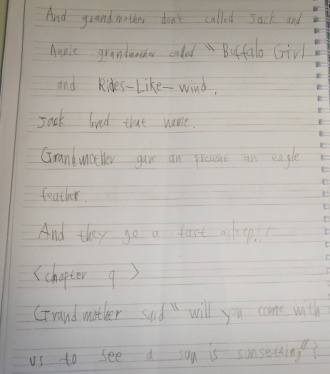 And grandmother don't called Jack and
Annie grandmother called " Buffalo Girl
and Rides-Like-wind.
Jack lived that name.
Grandmother gave an present an eagle
feather.
And they go a fast asleep!!
<chapter 9 >
Grandmother said " will you come with
us to see a sun is sunsetting"?